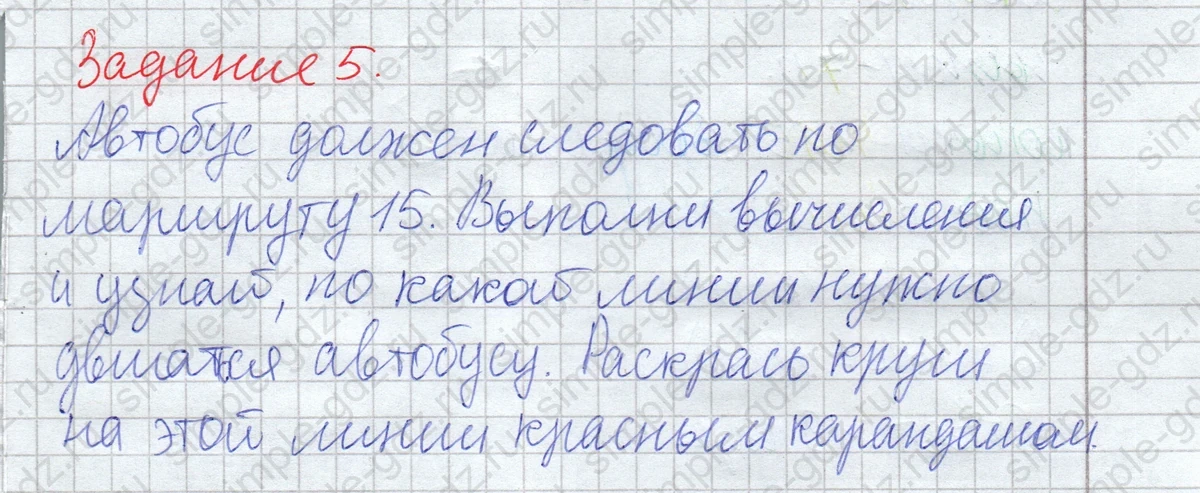 Задание 5.
Автобус должен следовать по
маршруту 15. Выполни вычисления
и узнай, по какой линии нужно
двигаться автобусу. Раскрась круги
на этой линии красным карандашом.
simple-gdz.ru